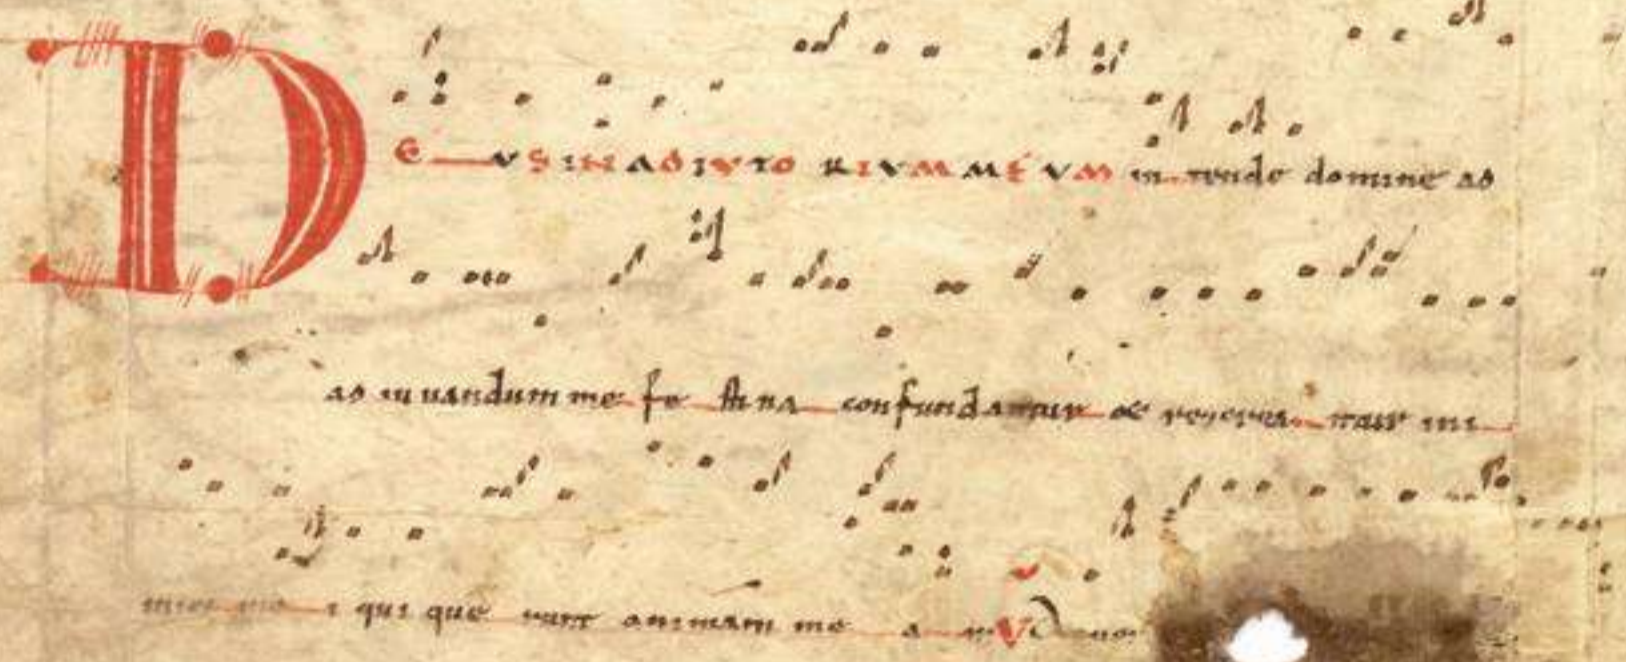 DEUS IN ADIUTORIUM MEUM in tende domine ad
ad iu uandum me fe sti na confundantur & reuerea ntur ini
mici me i qui que runt animam me a m V